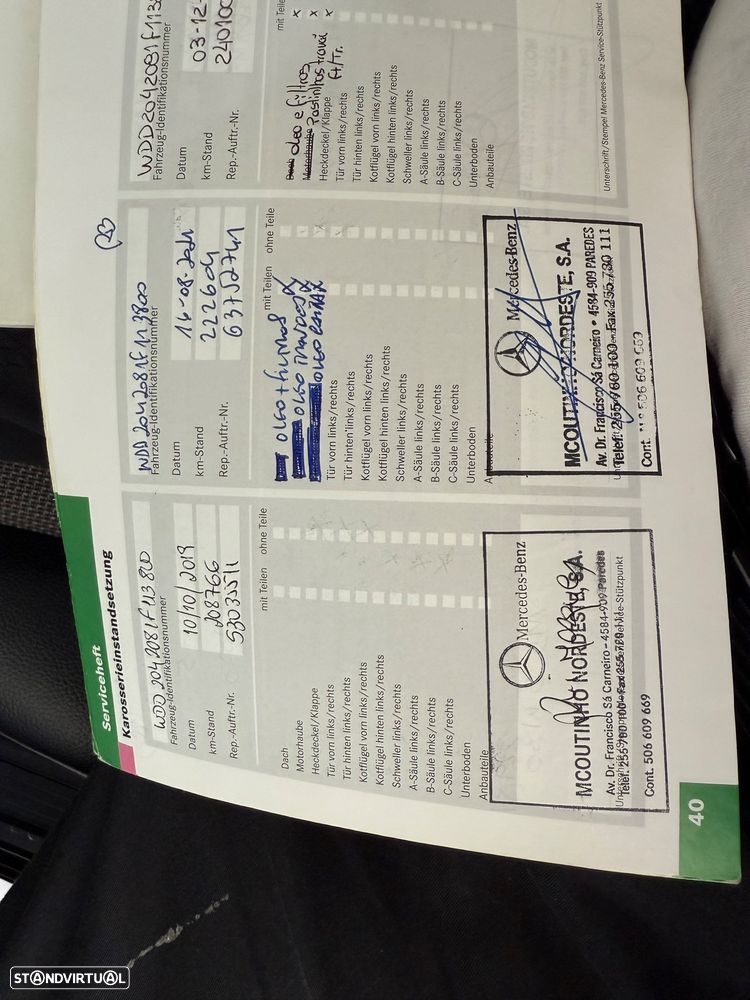 Serviceheft
Karosserieinstandsetzung
WDD2042081F113800
Fahrzeug-Identifikationsnummer
10/10/2019
Datum
208766
km-Stand
Rep.-Auftr.-Nr.
mit Teilen
ohne Teile
Dach
Motorhaube
Heckdeckel/Klappe
Tür vorn links/rechts
Tür hinten links/rechts
Kotflügel vorn links/rechts
Kotflügel hinten links/rechts
Schweller links/rechts
A-Säule links/rechts
B-Säule links/rechts
C-Säule links/rechts
Unterboden
Anbauteile
Mercedes-Benz
MCOUTINHO NORDESTE, S.A.
Av. Dr. Francisco Sá Carneiro - 4584-909 Paredes
Telef. 255 780 100 - Fax 255 780 111
Cont. 506 609 669
40
WDD2042081F113800
Fahrzeug-Identifikationsnummer
16-08-2021
Datum
222604
km-Stand
63752741
Rep.-Auftr.-Nr.
mit Teilen
ohne Teile
OLEO + FILTROS
Tür vorn links/rechts
Tür hinten links/rechts
Kotflügel vorn links/rechts
Kotflügel hinten links/rechts
Schweller links/rechts
A-Säule links/rechts
B-Säule links/rechts
C-Säule links/rechts
Unterboden
Anbauteile
Mercedes-Benz
MCOUTINHO NORDESTE, S.A.
Av. Dr. Francisco Sá Carneiro • 4584-909 PAREDES
Telef. 255 780 100 - Fax 255 780 111
Cont. Nº 506 609 669
Fahrzeug-Identifikationsnummer
03-12-
Datum
240100
km-Stand
Rep.-Auftr.-Nr.
mit Teile
oleo e filtros
Pastilhas travão
ft/tr.
Heckdeckel/Klappe
Tür vorn links/rechts
Tür hinten links/rechts
Kotflügel vorn links/rechts
Kotflügel hinten links/rechts
Schweller links/rechts
A-Säule links/rechts
B-Säule links/rechts
C-Säule links/rechts
Unterboden
Anbauteile
Unterschrift/Stempel Mercedes-Benz Service-Stützpunkt
STANDVIRTUAL